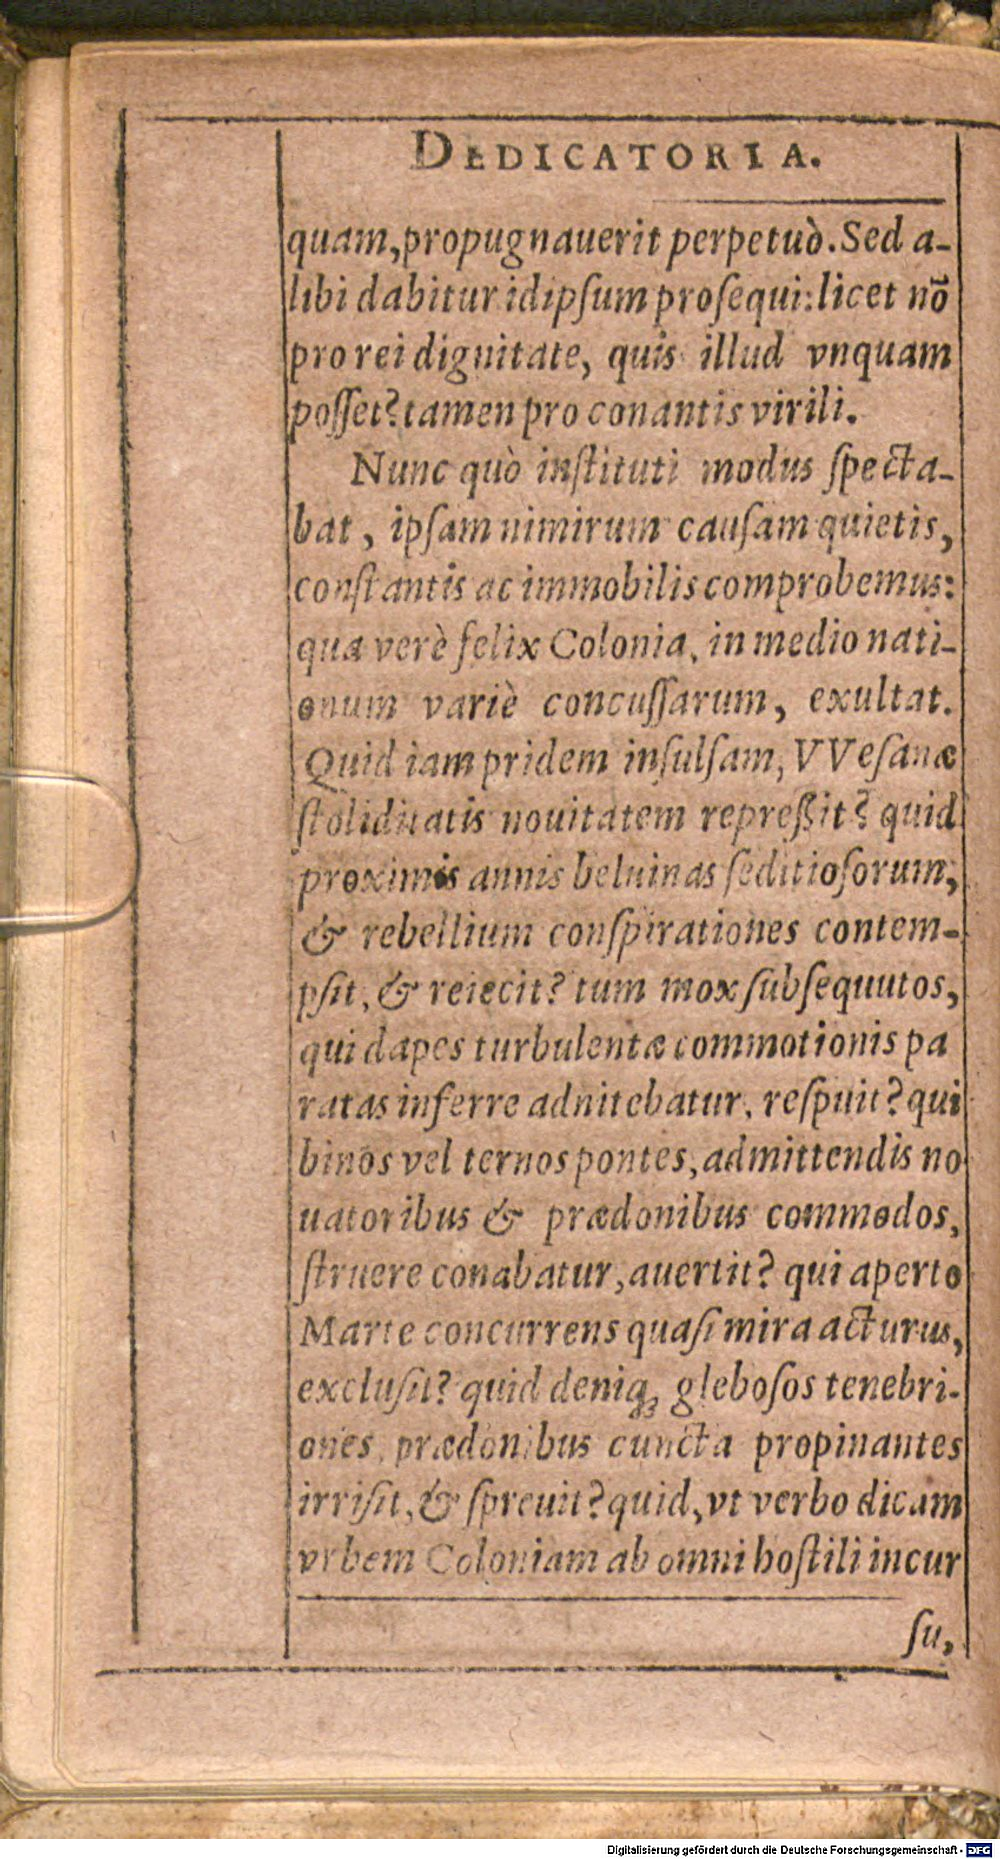 DEDICATORIA.
quam, propugnauerit perpetuò. Sed a-
libi dabitur idipſum proſequi: licet nō
pro rei dignitate, quis illud vnquam
poſſet? tamen pro conantis virili.
Nunc quò inſtituti modus ſpecta-
bat, ipſam nimirum cauſam quietis,
conſtantis ac immobilis comprobemus:
qua verè felix Colonia, in medio nati-
onum variè concuſſarum, exultat.
Quid iam pridem inſulſam, VVeſanæ
ſtoliditatis nouitatem repreßit? quid
proximis annis beluinas ſeditioſorum,
& rebellium conſpirationes contem-
pſit, & reiecit? tum mox ſubſequutos,
qui dapes turbulentæ commotionis pa
ratas inferre adnitebatur, reſpuit? qui
binos vel ternos pontes, admittendis no
uatoribus & prædonibus commodos,
ſtruere conabatur, auertit? qui aperto
Marte concurrens quaſi mira acturus,
excluſit? quid deniq; gleboſos tenebri-
ones, prædonibus cuncta propinantes
irriſit, & ſpreuit? quid, vt verbo dicam
vrbem Coloniam ab omni hoſtili incur
ſu,
Digitalisierung gefördert durch die Deutsche Forschungsgemeinschaft - DFG